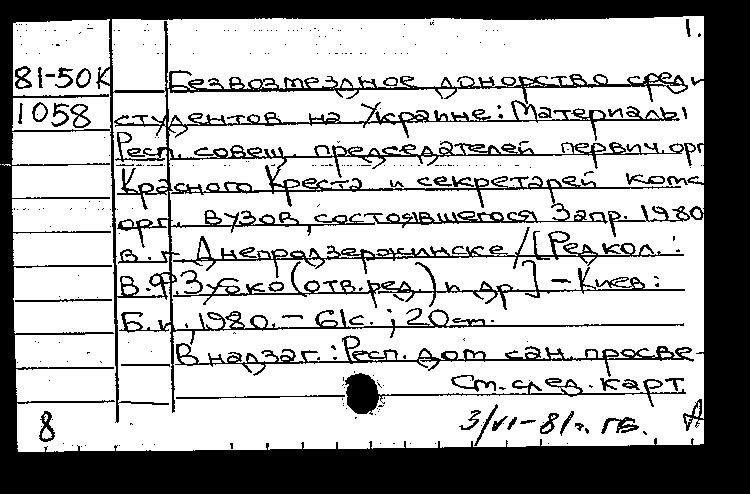 1.
81-50К Безвозмездное донорство среди
1058 студентов на Украине: Материалы
Респ. совещ. председателей первич. орг
Красного Креста и секретарей комс
орг. вузов, состоявшегося 3 апр. 1980
в г. Днепродзержинске / [Редкол.:
В.Ф. Зубко (отв. ред.) и др.] - Киев:
Б.и., 1980. - 61с.; 20см.
В надзаг.: Респ. дом сан. просве-
См. след. карт.
8 3/VI-81г. ГБ.